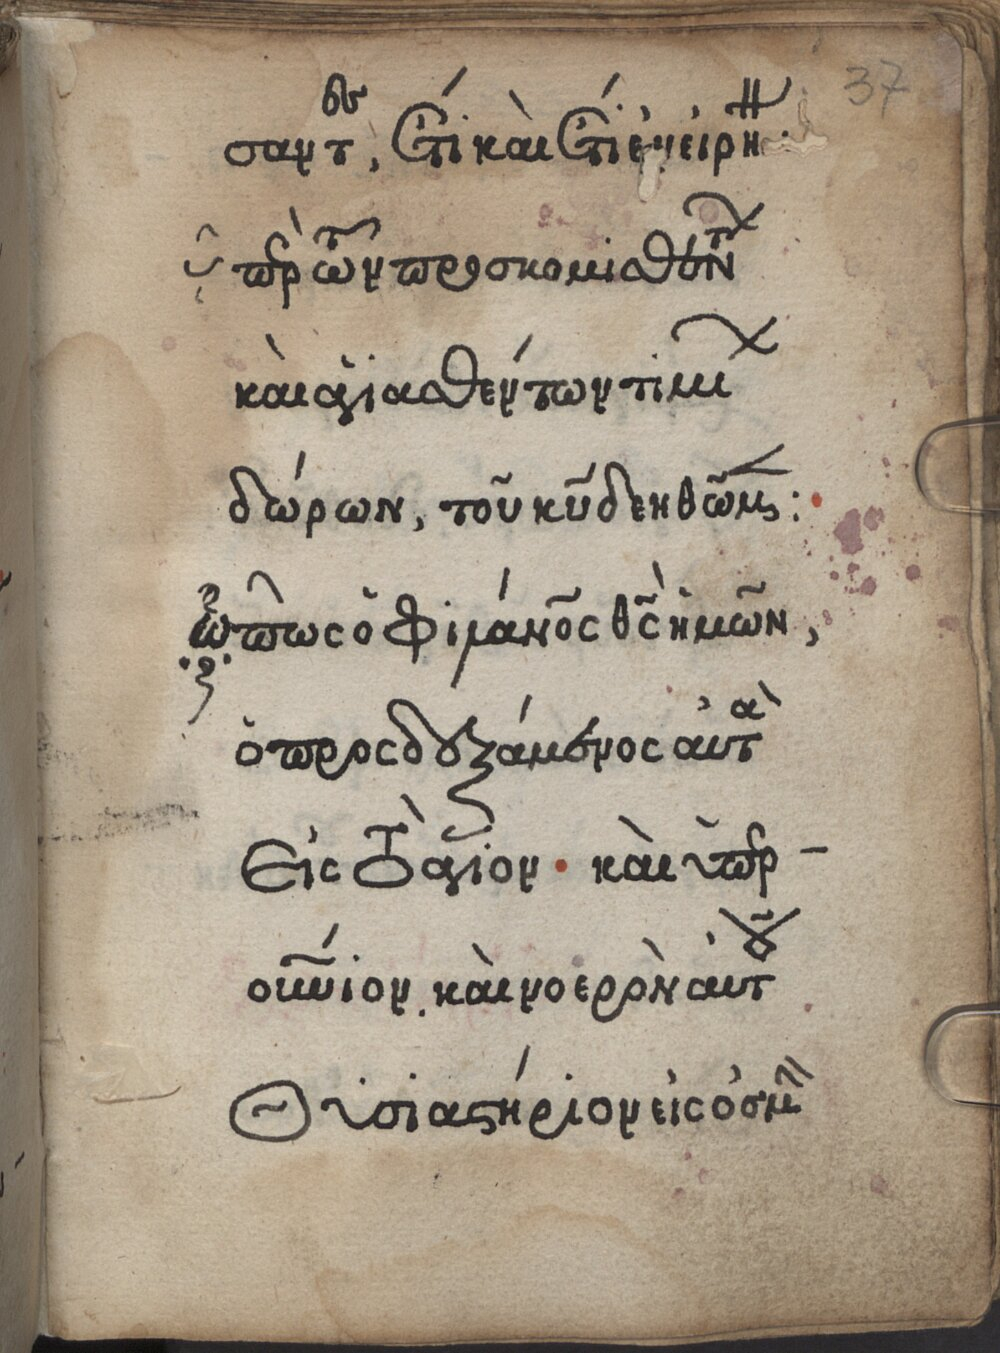 37
σαντ, Ἔτι καὶ ἔτι ἐν εἰρή
ὑπὲρ τῶν προσκομισθέντ
καὶ ἁγιασθέντων τιμι
δώρων, τοῦ κῦ δεηθῶμ:
ὅπως ὁ φιλάνος θς ἡμῶν,
ὁ προσδεξάμενος αὐτὰ
Εἰς τὸ ἅγιον · καὶ ὑπερ-
ουνιον, καὶ νοερὸν αὐτοῦ
Θυσιαστήριον εἰς ὀσμὴ